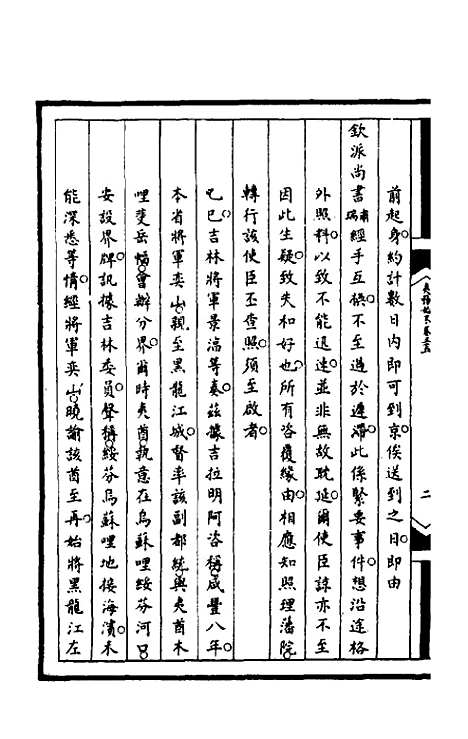 前起身約計數日內即可到京俟送到之日即由
欽派尚書肅瑞經手互換不至過於遲滯此係緊要事件想沿途格
外照料以致不能迅速並非無故耽延爾使臣諒亦不至
因此生疑致失和好也所有咨覆緣由相應知照理藩院
轉行該使臣丕查照須至啟者
乙巳吉林將軍景淳等奏茲據吉拉明阿咨稱咸豐八年
本省將軍奕山親至黑龍江城督率該副都統與夷酋木
哩斐岳幅會辦分界爾時夷酋執意在烏蘇哩綏芬河口
安設界牌訊據吉林委員聲稱綏芬烏蘇哩地接海濱未
能深悉等情經將軍奕山曉諭該酋至再始將黑龍江左
二